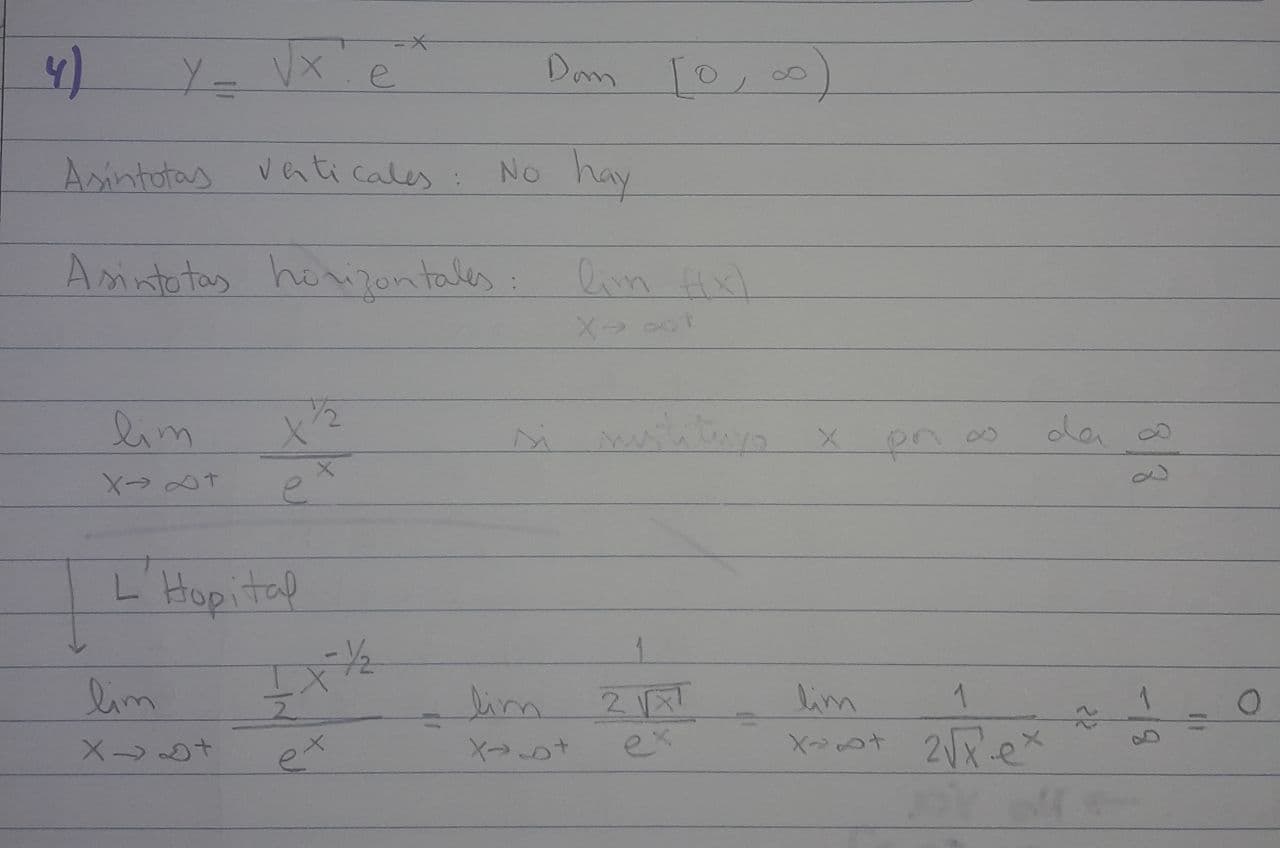 4) y = √x · e^-x Dom [0, ∞)
Asíntotas verticales: No hay
Asintotas horizontales: lim f(x)
x→∞+
lim x^1/2 / e^x si sustituyo x por ∞ da ∞/∞
x→∞+
L'Hopital
lim (1/2 x^-1/2) / e^x = lim (1 / 2√x) / e^x = lim 1 / (2√x · e^x) ≈ 1/∞ = 0
x→∞+ x→∞+ x→∞+